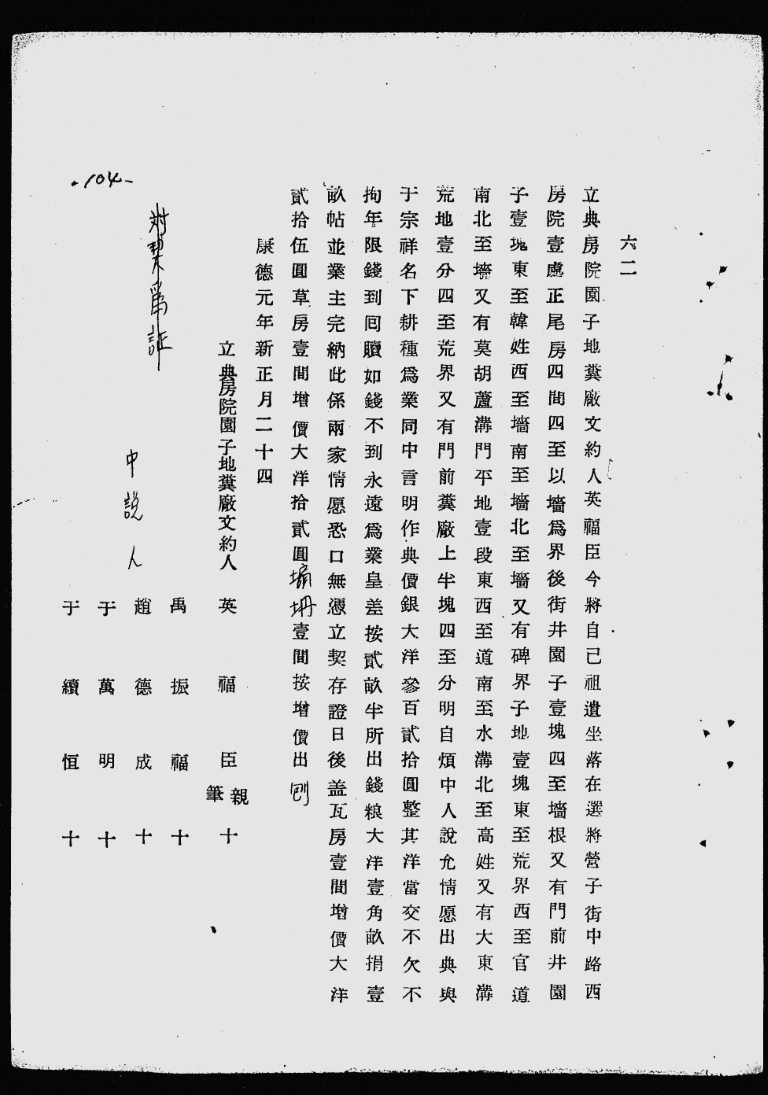 六二
立典房院園子地糞廠文約人英福臣今將自己祖遺坐落在選將營子街中路西
房院壹處正尾房四間四至以墻爲界後街井園子壹塊四至墻根又有門前井園
子壹塊東至韓姓西至墻南至墻北至墻又有碑界子地壹塊東至荒界西至官道
南北至墻又有莫胡蘆溝門平地壹段東西至道南至水溝北至高姓又有大東溝
荒地壹分四至荒界又有門前糞廠上半塊四至分明自煩中人說允情愿出典與
于宗祥名下耕種爲業同中言明作典價銀大洋參百貳拾圓整其洋當交不欠不
拘年限錢到囘贖如錢不到永遠爲業皇差按貳畝半所出錢粮大洋壹角畝捐壹
畝帖並業主完納此係兩家情愿恐口無憑立契存證日後盖瓦房壹間增價大洋
貳拾伍圓草房壹間增價大洋拾貳圓塌坍壹間按增價出刨
康德元年新正月二十四
立典房院園子地糞廠文約人 英福臣 親筆 十
禹振福 十
趙德成 十
中說人
于萬明 十
于續恒 十
對契爲証
-104-